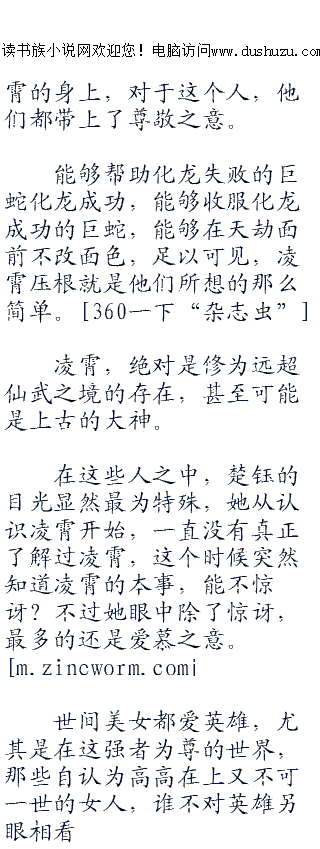 读书族小说网欢迎您！电脑访问www.dushuzu.com
霄的身上，对于这个人，他
们都带上了尊敬之意。
能够帮助化龙失败的巨
蛇化龙成功，能够收服化龙
成功的巨蛇，能够在天劫面
前不改面色，足以可见，凌
霄压根就是他们所想的那么
简单。[360一下“杂志虫”]
凌霄，绝对是修为远超
仙武之境的存在，甚至可能
是上古的大神。
在这些人之中，楚钰的
目光显然最为特殊，她从认
识凌霄开始，一直没有真正
了解过凌霄，这个时候突然
知道凌霄的本事，能不惊
讶？不过她眼中除了惊讶，
最多的还是爱慕之意。
[m.zincworm.com]
世间美女都爱英雄，尤
其是在这强者为尊的世界，
那些自认为高高在上又不可
一世的女人，谁不对英雄另
眼相看